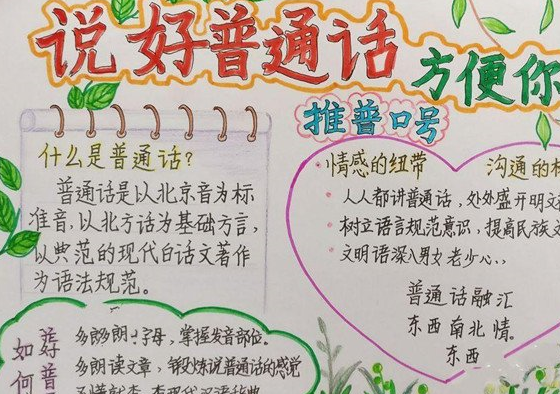 说好普通话
方便你
推普口号
什么是普通话?
普通话是以北京音为标
准音,以北方话为基础方言,
以典范的现代白话文著作
为语法规范。
情感的纽带 沟通的
人人都讲普通话,处处盛开明文
树立语言规范意识,提高民族文
文明语深入男女老少心..
普通话融汇
东西南北情。
东西
如何
普
多郎多朗上字母,掌握发音部位。
多朗读文章,锻炼说普通话的感觉